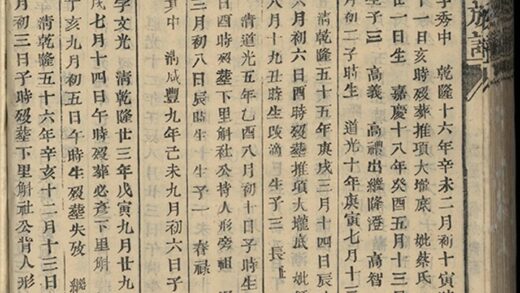 族譜
字秀中 乾隆十六年辛未二月初十寅時
十一日亥時歿葬推項大壠底 妣蔡氏
廿一日生 嘉慶十八年癸酉五月十三
生子三 高義 高禮出繼隆澄 高智
初二子時生 道光十年庚寅七月十三
清乾隆五十五年庚戌三月十四日辰
月初六日酉時歿葬推項大壠底 妣
八月十九丑時生改適 生子三 長
清道光五年乙酉八月初十日子時生
日酉時歿葬下里斛社公背人形旁祖
三月初八日辰時生 生子一 春祿
其中 清咸豐九年己未九月初六日子
字文光 清乾隆廿三年戊寅九月廿九
戌七月十四日午時歿葬必查下里斛
丁亥九月初五日午時生歿葬失攷 繼
清乾隆五十六年辛亥十二月十三日
月初三日子時歿葬下里斛社公背人形